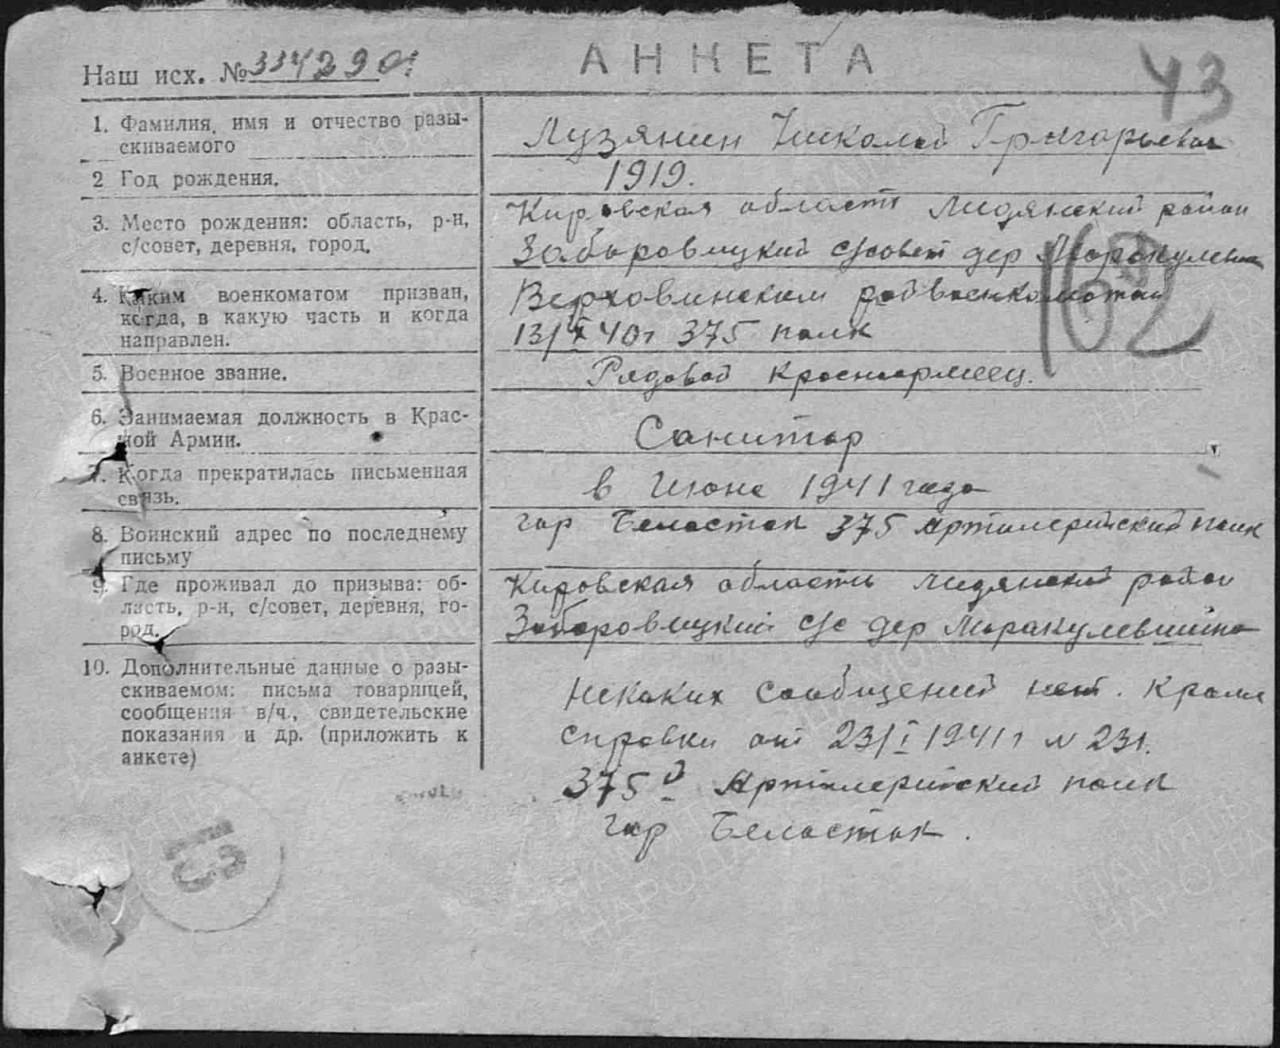 АНКЕТА
43
Наш исх. №334290
1. Фамилия, имя и отчество разы-
скиваемого
Лузянин Николай Григорьевич
2 Год рождения.
1919.
3. Место рождения: область, р-н,
с/совет, деревня, город.
Кировская область Лидянский район
Забаровицкий с/совет дер
162
4. Каким военкоматом призван,
когда, в какую часть и когда
направлен.
Верховинским райвоенкоматом
13/X 40г 375 полк
5. Военное звание.
Рядовой Красноармеец.
6. Занимаемая должность в Крас-
ной Армии.
Санитар
7. Когда прекратилась письменная
связь.
в Июне 1941 года
8. Воинский адрес по последнему
письму
гор Беласток 375 Артилерийский полк
9. Где проживал до призыва: об-
ласть, р-н, с/совет, деревня, го-
род.
Кировская область Лидянский район
Забаровицкий с/с дер Маракулевшина
10. Дополнительные данные о разы-
скиваемом: письма товарищей,
сообщения в/ч., свидетельские
показания и др. (приложить к
анкете)
Некаких сообщений нет. Краме
справки от 23/I 1941г N 231.
375й Артилерийский полк
гор Беласток.
ПАМЯТЬ
НАРОДА